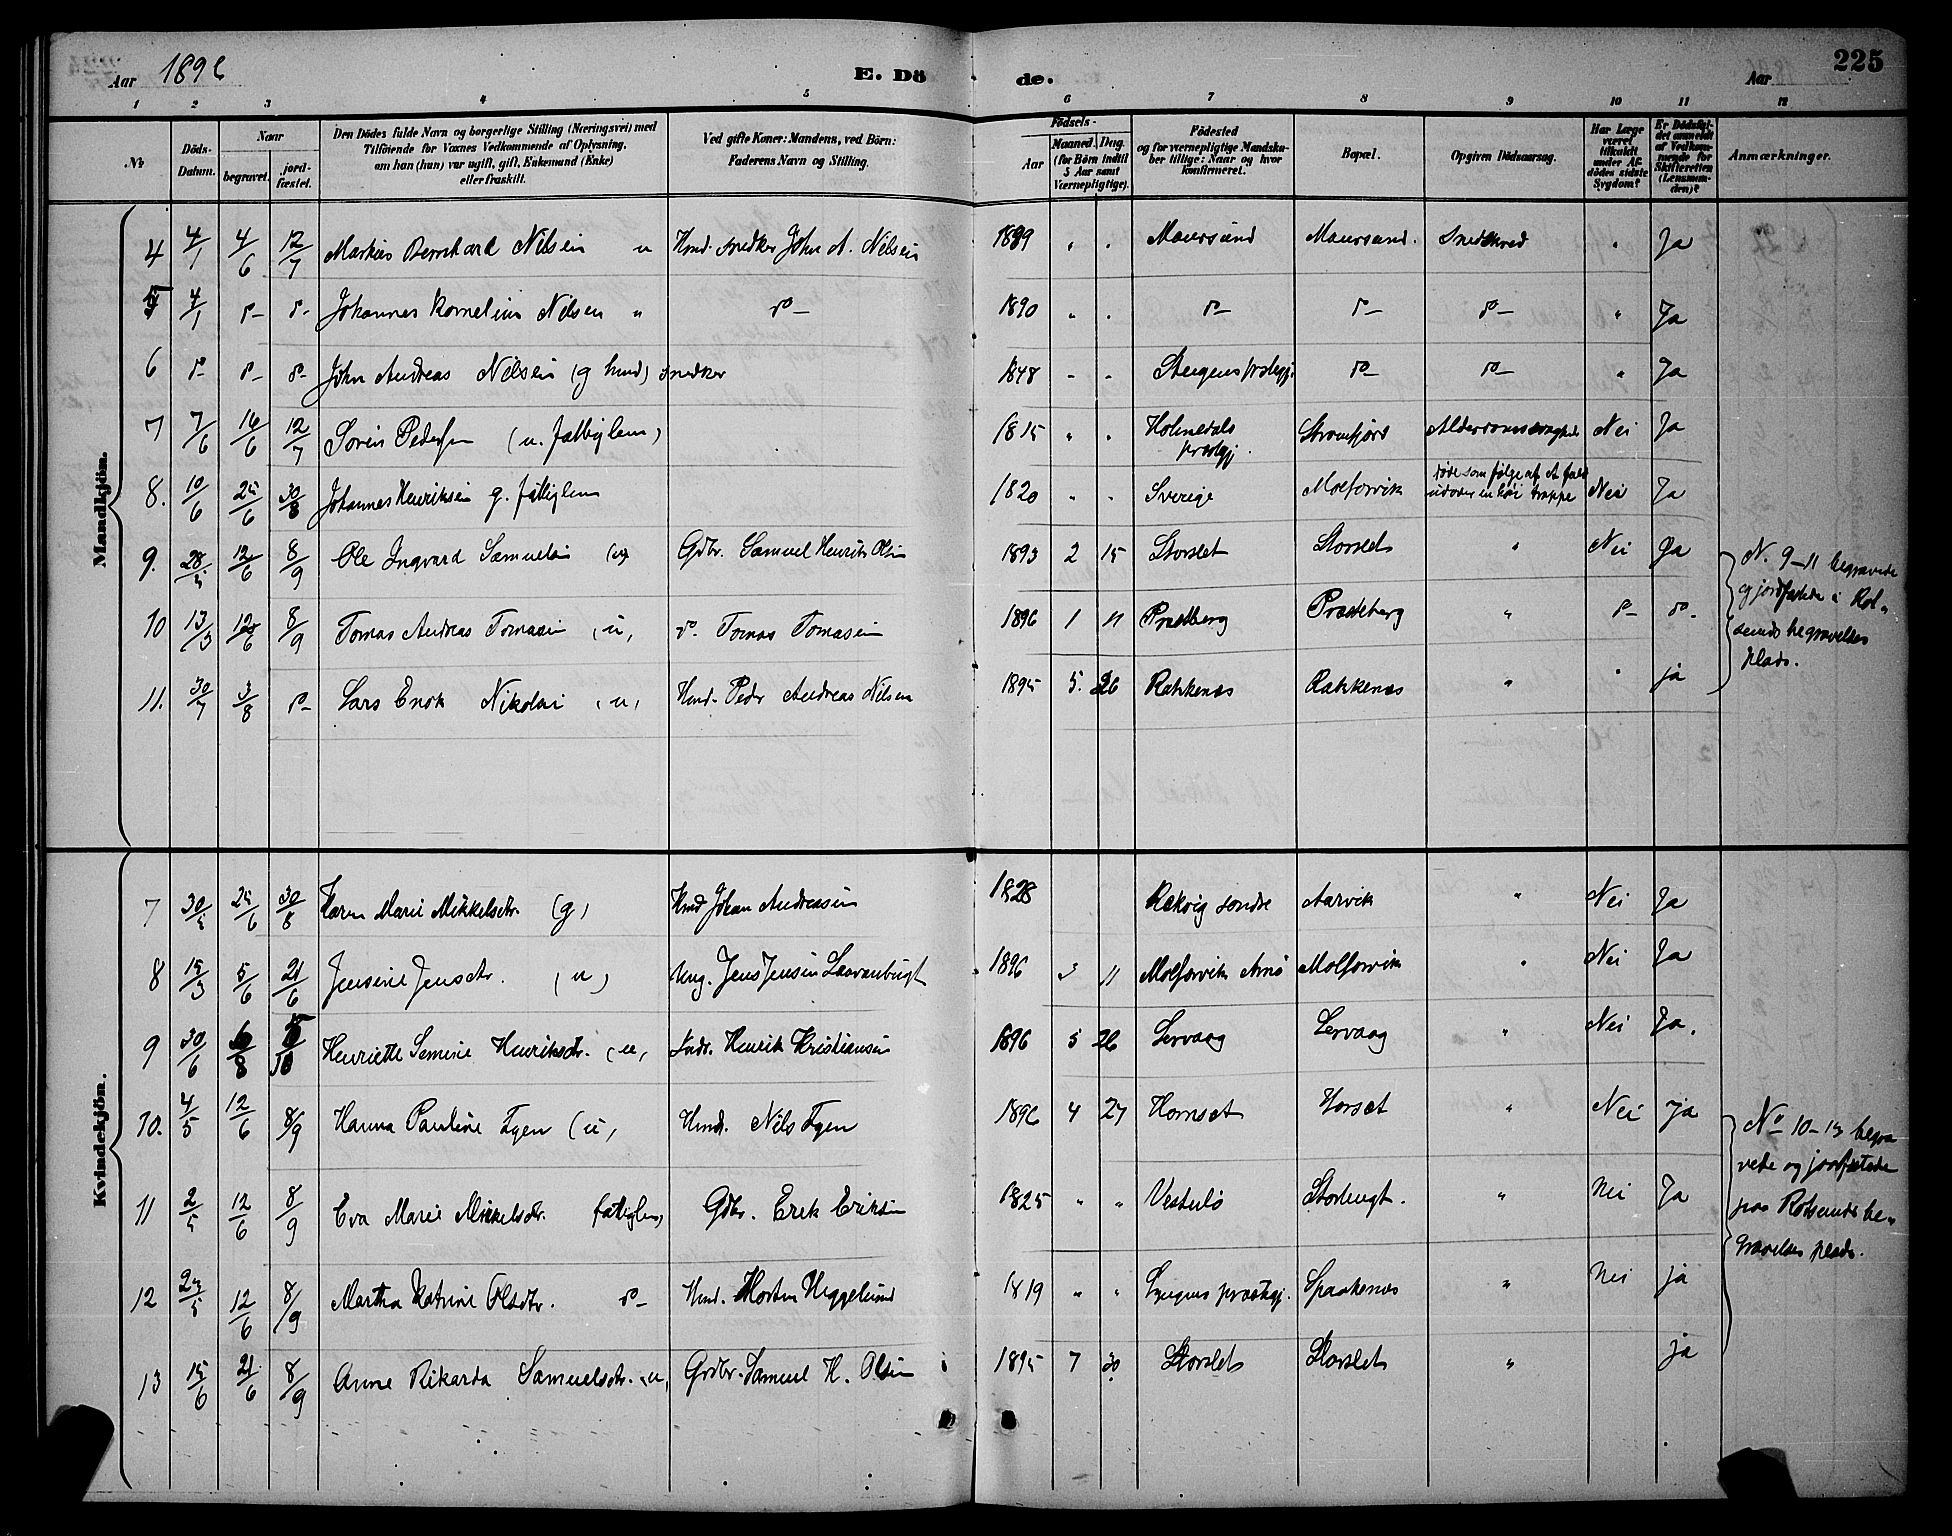 Aar 1896 E. Dö de. Aar 225
1 2 3 4 5 6 7 8 9 10 11 12
№ Döds-Datum. Naar begravet. jord-fæstet. Den Dödes fulde Navn og borgerlige Stilling (Næringsvei) med Tilföiende for Voxnes Vedkommende af Oplysning, om han (hun) var ugift, gift, Enkemand (Enke) eller fraskilt. Ved gifte Koner: Mandens, ved Börn: Faderens Navn og Stilling. Födsels- Aar Maaned Dag. (for Börn indtil 5 Aar samt Værnepligtige). Födested og for værnepligtige Mandskaber tillige: Naar og hvor konfirmeret. Bopæl. Opgiven Dödsaarsag. Har Læge været tilkaldt under Afdödes sidste Sygdom? Er Dödsfaldet anmeldt af Vedkommende for Skifteretten (Lensmanden)? Anmærkninger.
Mandkjön.
4 4/1 4/6 12/7 Markus Bernhard Nilsen u Hmd. snedker John A. Nilsen 1889 " " Maursund Maursund. Sneskred " Ja
5 4/1 do- do- Johannes Kornelius Nilsen " do- 1890 " " do- do- do- " Ja
6 do- do- do- John Andreas Nilsen (g hmd) snedker 1848 - - do- do- " Ja
7 7/6 16/6 12/7 Sören Pedersen (u. fattiglem) 1815 " " Holmedals prstgj. Straumfjord Alderdomssvaghed Nei Ja
8. 10/6 25/6 30/8 Johannes Henriksen g. fattiglem 1820 " " Sverige Molforvik döde som følge af et fald udover en höi trappe Nei Ja
9. 28/5 12/6 8/9 Ole Ingvard Samuelsen (u) Gdbr. Samuel Henrik Olsen 1893 2 15 Storslet Storslet " Nei Ja N. 9-11 begravede og jordfæstede i Rotsunds begravelses plads.
10 13/3 12/6 8/9 Tomas Andreas Tomasen (u, do. Tomas Tomasen 1896 1 11 " do- do-
11. 30/7 3/8 do- Lars Enok Nikolai (u, Hmd. Peder Andreas Nilsen 1895 5. 26 Rakkenes Rakkenes " " ja
Kvindekjön.
7 30/5 25/6 30/8 Karen Marie Mikkelsdtr. (g) Hmd Johan Andreasen 1828 Rekvig söndre Aarvik " Nei Ja
8 15/3 5/6 21/6 Jensine Jensdtr. (u) Ung. Jens Jensen 1896 3 11 Molforvik Arnö Molforvik " Nei Ja
9 30/6 Henriette Semine Henriksdtr. (u, Indr. Henrik Kristiansen 1896 5 26 Lervaag Lervaag " Nei Ja.
10. 4/5 12/6 8/9 Hanna Pauline Fyen (u, Hmd. Nils Fyen 1896 4 27 Homset Horset " Nei Ja No 10-13 begravede og jordfæstede paa Rotsunds begravelses plads.
11 2/5 12/6 8/9 Eva Marie Mikkelsdtr. fattiglem, Gdbr. Erik Eriksen 1825 " " Storbugt. " Nei Ja
12 12/6 8/9 Martha Katrine Olsdtr. do- Hmd. Morten Heggelund 1819 " " Lyngens præstgj. Spaakenes " Nei ja
13 15/6 21/6 8/9 Anne Rikarda Samuelsdtr. u, Grdbr. Samuel H. Olsen 1895 7 30 Storslet Storslet " ja